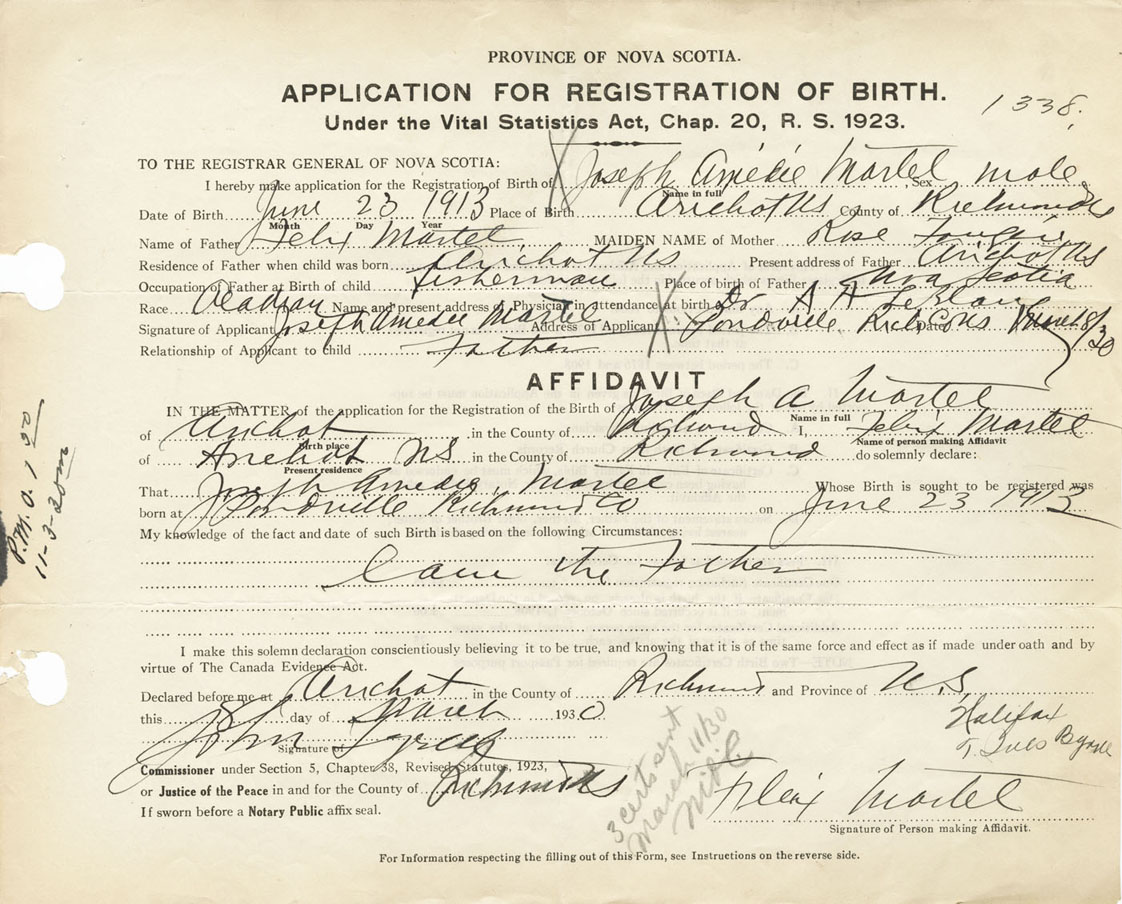 PROVINCE OF NOVA SCOTIA.
APPLICATION FOR REGISTRATION OF BIRTH.
1338.
Under the Vital Statistics Act, Chap. 20, R. S. 1923.
TO THE REGISTRAR GENERAL OF NOVA SCOTIA:
I hereby make application for the Registration of Birth of Joseph Amédie Martel Sex male
Name in full
Date of Birth June 23 1913 Place of Birth Arichat NS County of Richmond NS
Month Day Year
Name of Father Felix Martel MAIDEN NAME of Mother Rose
Residence of Father when child was born Arichat NS Present address of Father Arichat NS
Occupation of Father at Birth of child fisherman Place of birth of Father Nova Scotia
Race Acadian Name and present address of Physician in attendance at birth Dr A A LeBlanc
Signature of Applicant Joseph Amedie Martel Address of Applicant Pondville Rich Co NS Dated March 8/30
Relationship of Applicant to child Father
AFFIDAVIT
IN THE MATTER of the application for the Registration of the Birth of Joseph A Martel
Name in full
of Arichat in the County of Richmond I, Felix Martel
Birth place Name of person making Affidavit
of Arichat NS in the County of Richmond do solemnly declare:
Present residence
That Joseph Amedie Martel Whose Birth is sought to be registered was
born at Pondville Richmond Co on June 23 1913
My knowledge of the fact and date of such Birth is based on the following Circumstances:
I am the Father
I make this solemn declaration conscientiously believing it to be true, and knowing that it is of the same force and effect as if made under oath and by
virtue of The Canada Evidence Act.
Declared before me at Arichat in the County of Richmond and Province of N.S
this 8th day of March 1930
Halifax
Byrne
John
Signature of
Commissioner under Section 5, Chapter 38, Revised Statutes, 1923,
or Justice of the Peace in and for the County of Richmond NS
If sworn before a Notary Public affix seal.
Felix Martel
Signature of Person making Affidavit.
3 certs sent
March 11/30
For Information respecting the filling out of this Form, see Instructions on the reverse side.
P.M.O. 1 00
11-3-30
NOTE—Two Birth Certificates are required for Passport purposes